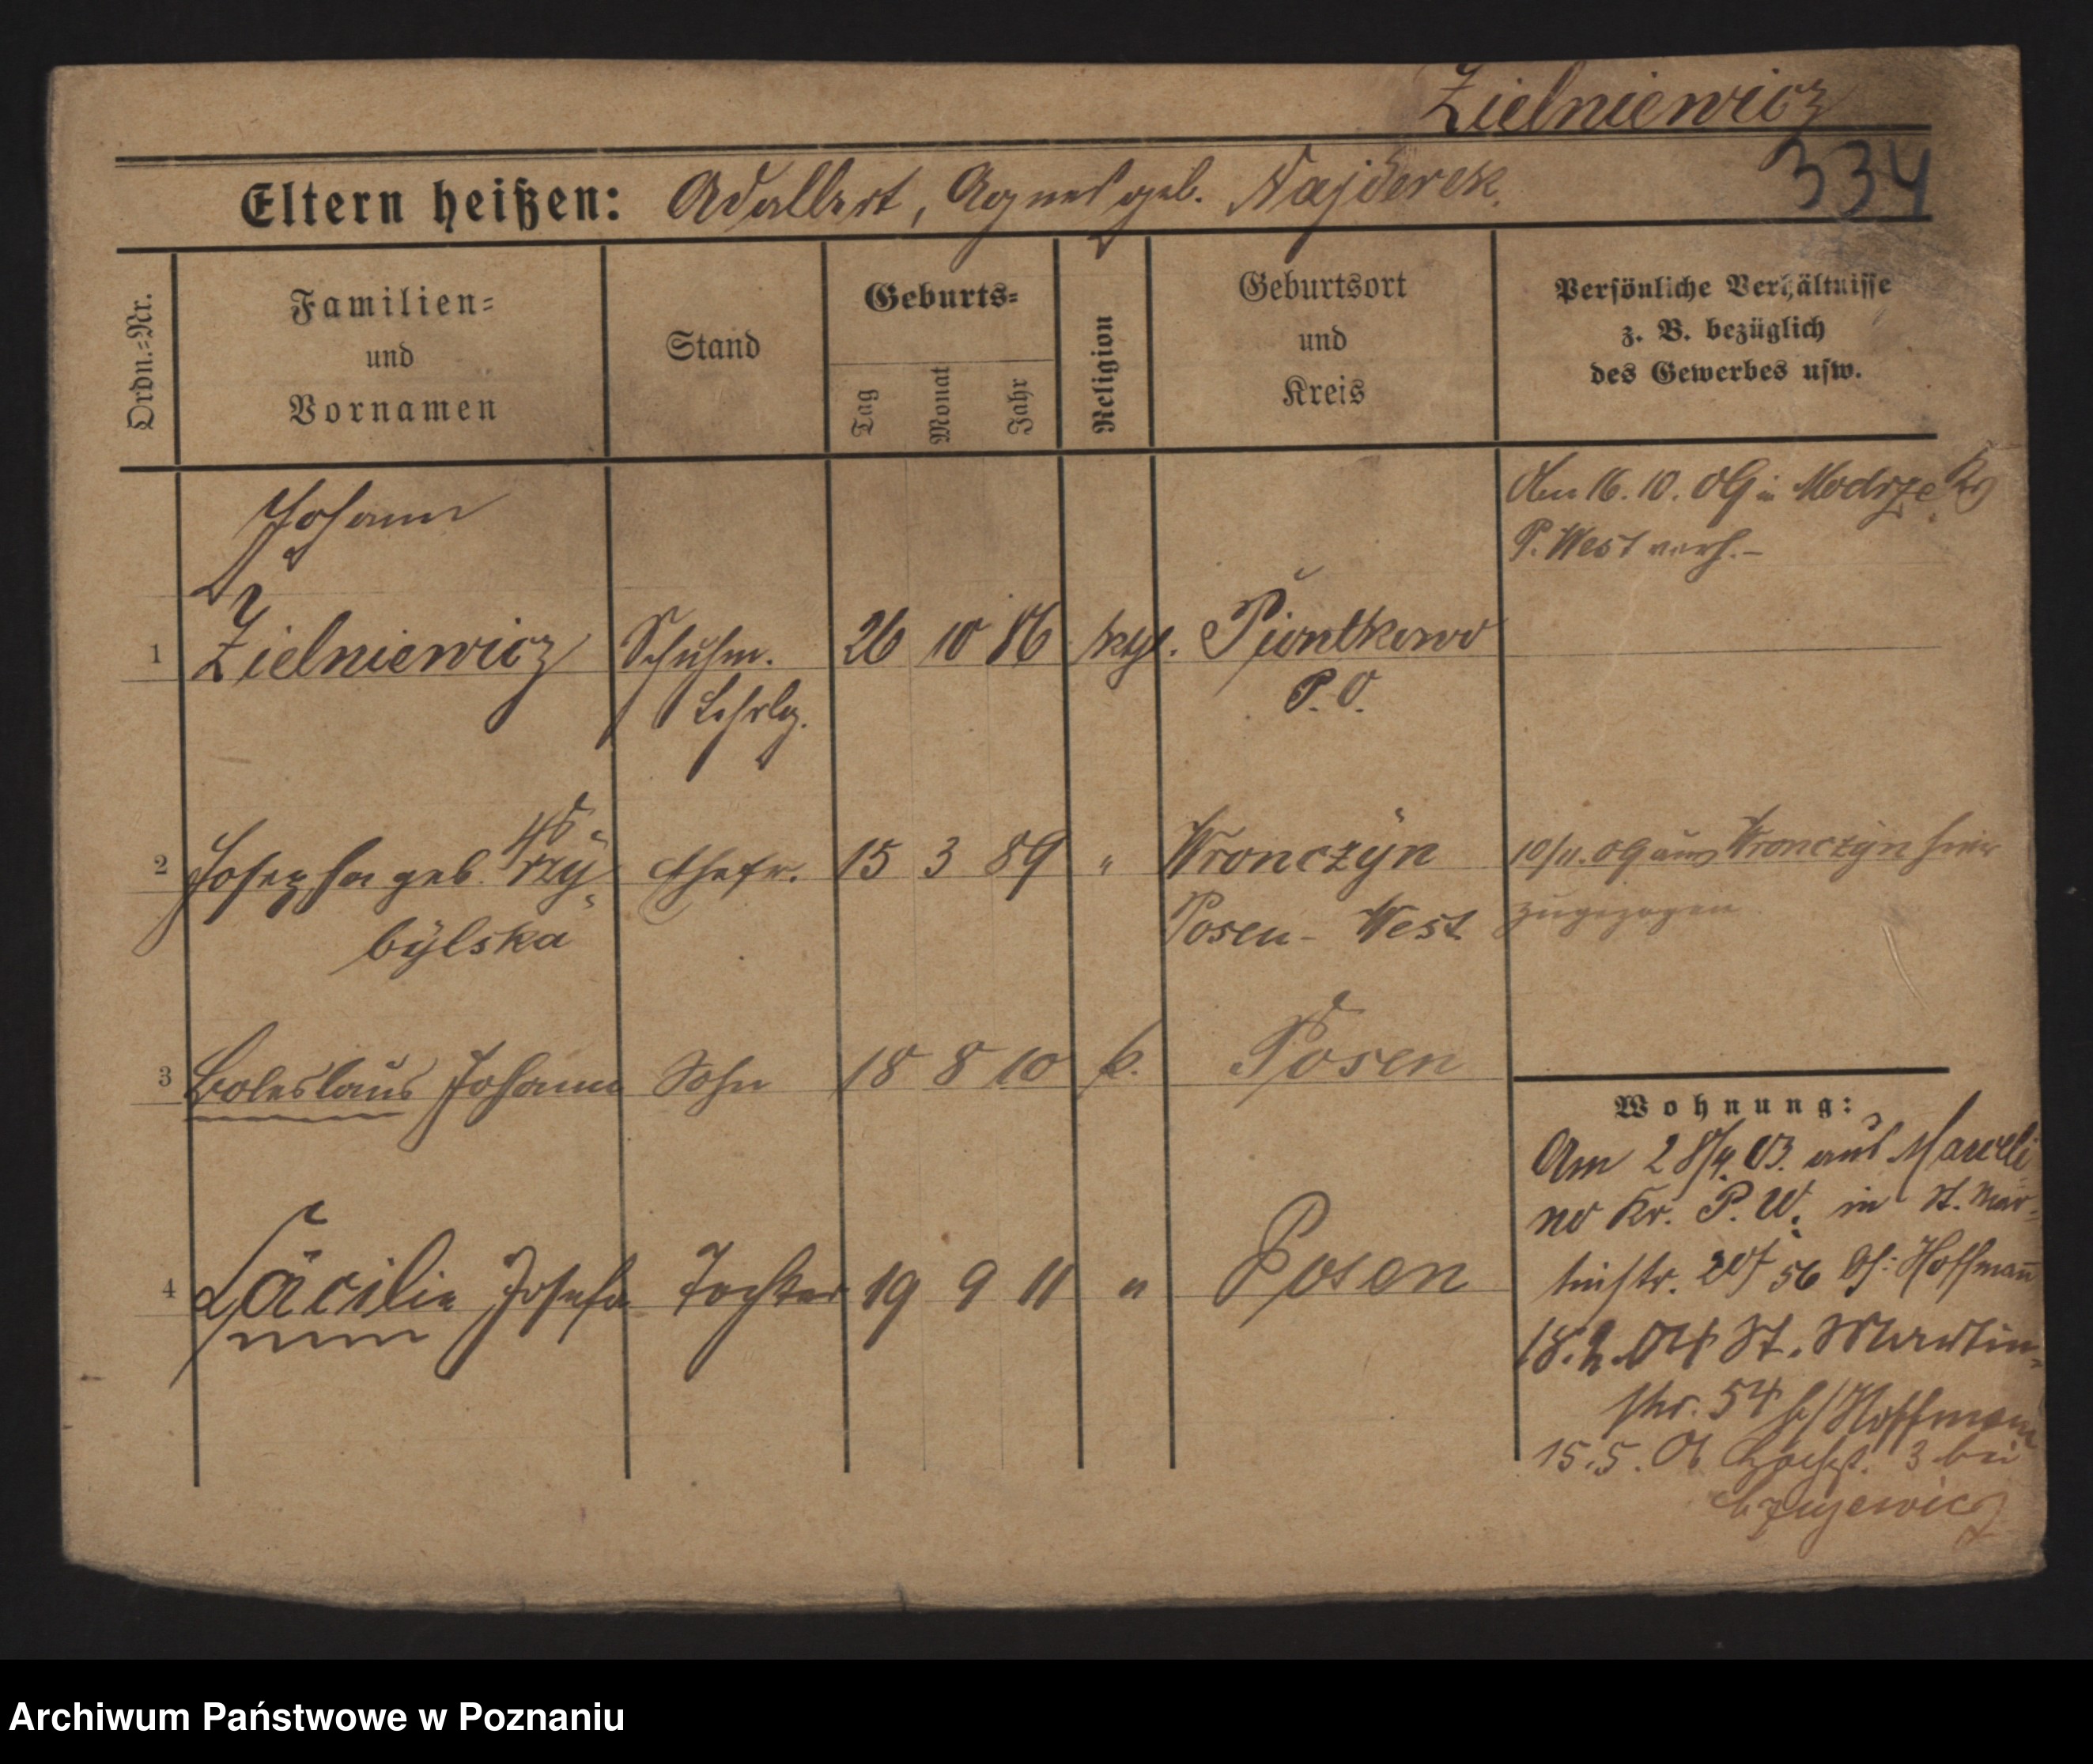 Zielniewicz
334
Eltern heißen: Adalbert, Agnes geb. Najderek.
Ordn.-Nr.
Familien-
und
Vornamen
Stand
Geburts-
Tag
Monat
Jahr
Religion
Geburtsort
und
Kreis
Persönliche Verhältnisse
z. B. bezüglich
des Gewerbes usw.
Johann
1 Zielniewicz Schuhm. 26 10 86 ktl. Piontkowo
Lehrlg. P. O.
Am 16. 10. 09 in Modrze Kr
P. West verh. –
2 Josepha geb. Przy- Ehefr. 15 3 89 " Wronczyn
bylska Posen - West
10/11. 09 aus Wronczyn hier
zugezogen
3 Boleslaus Johann Sohn 18 8 10 k. Posen
4 Cäcilie Josefa Tochter 19 9 11 " Posen
Wohnung:
Am 28/4. 03. aus Marceli
no Kr. P. W. in St. Mar-
tinstr. 56 Hoffmann
18. 2. 04 St. Martin-
str. 54 b/ Hoffmann
15. 5. 3 bei
Archiwum Państwowe w Poznaniu